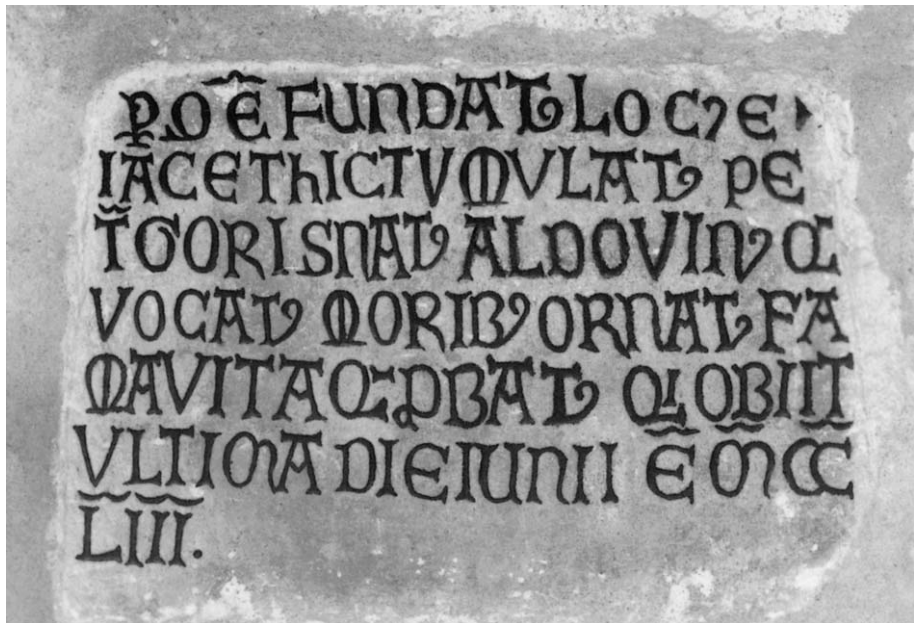 ꝑ Q̄ Ē FUNDATꝰ LOCꝰ E
IĀCET hIC TVMVLATꝰ PE
T̄GORIS NATꝰ ALDOVINꝰ Q
VOCATꝰ MORIBꝰ ORNATꝰ FA
MA VITA Q̄ ꝓBATꝰ QI OBIIT
VLTIMA DIE IUNII Ē M̄ CC̄
L̄IIĪ.